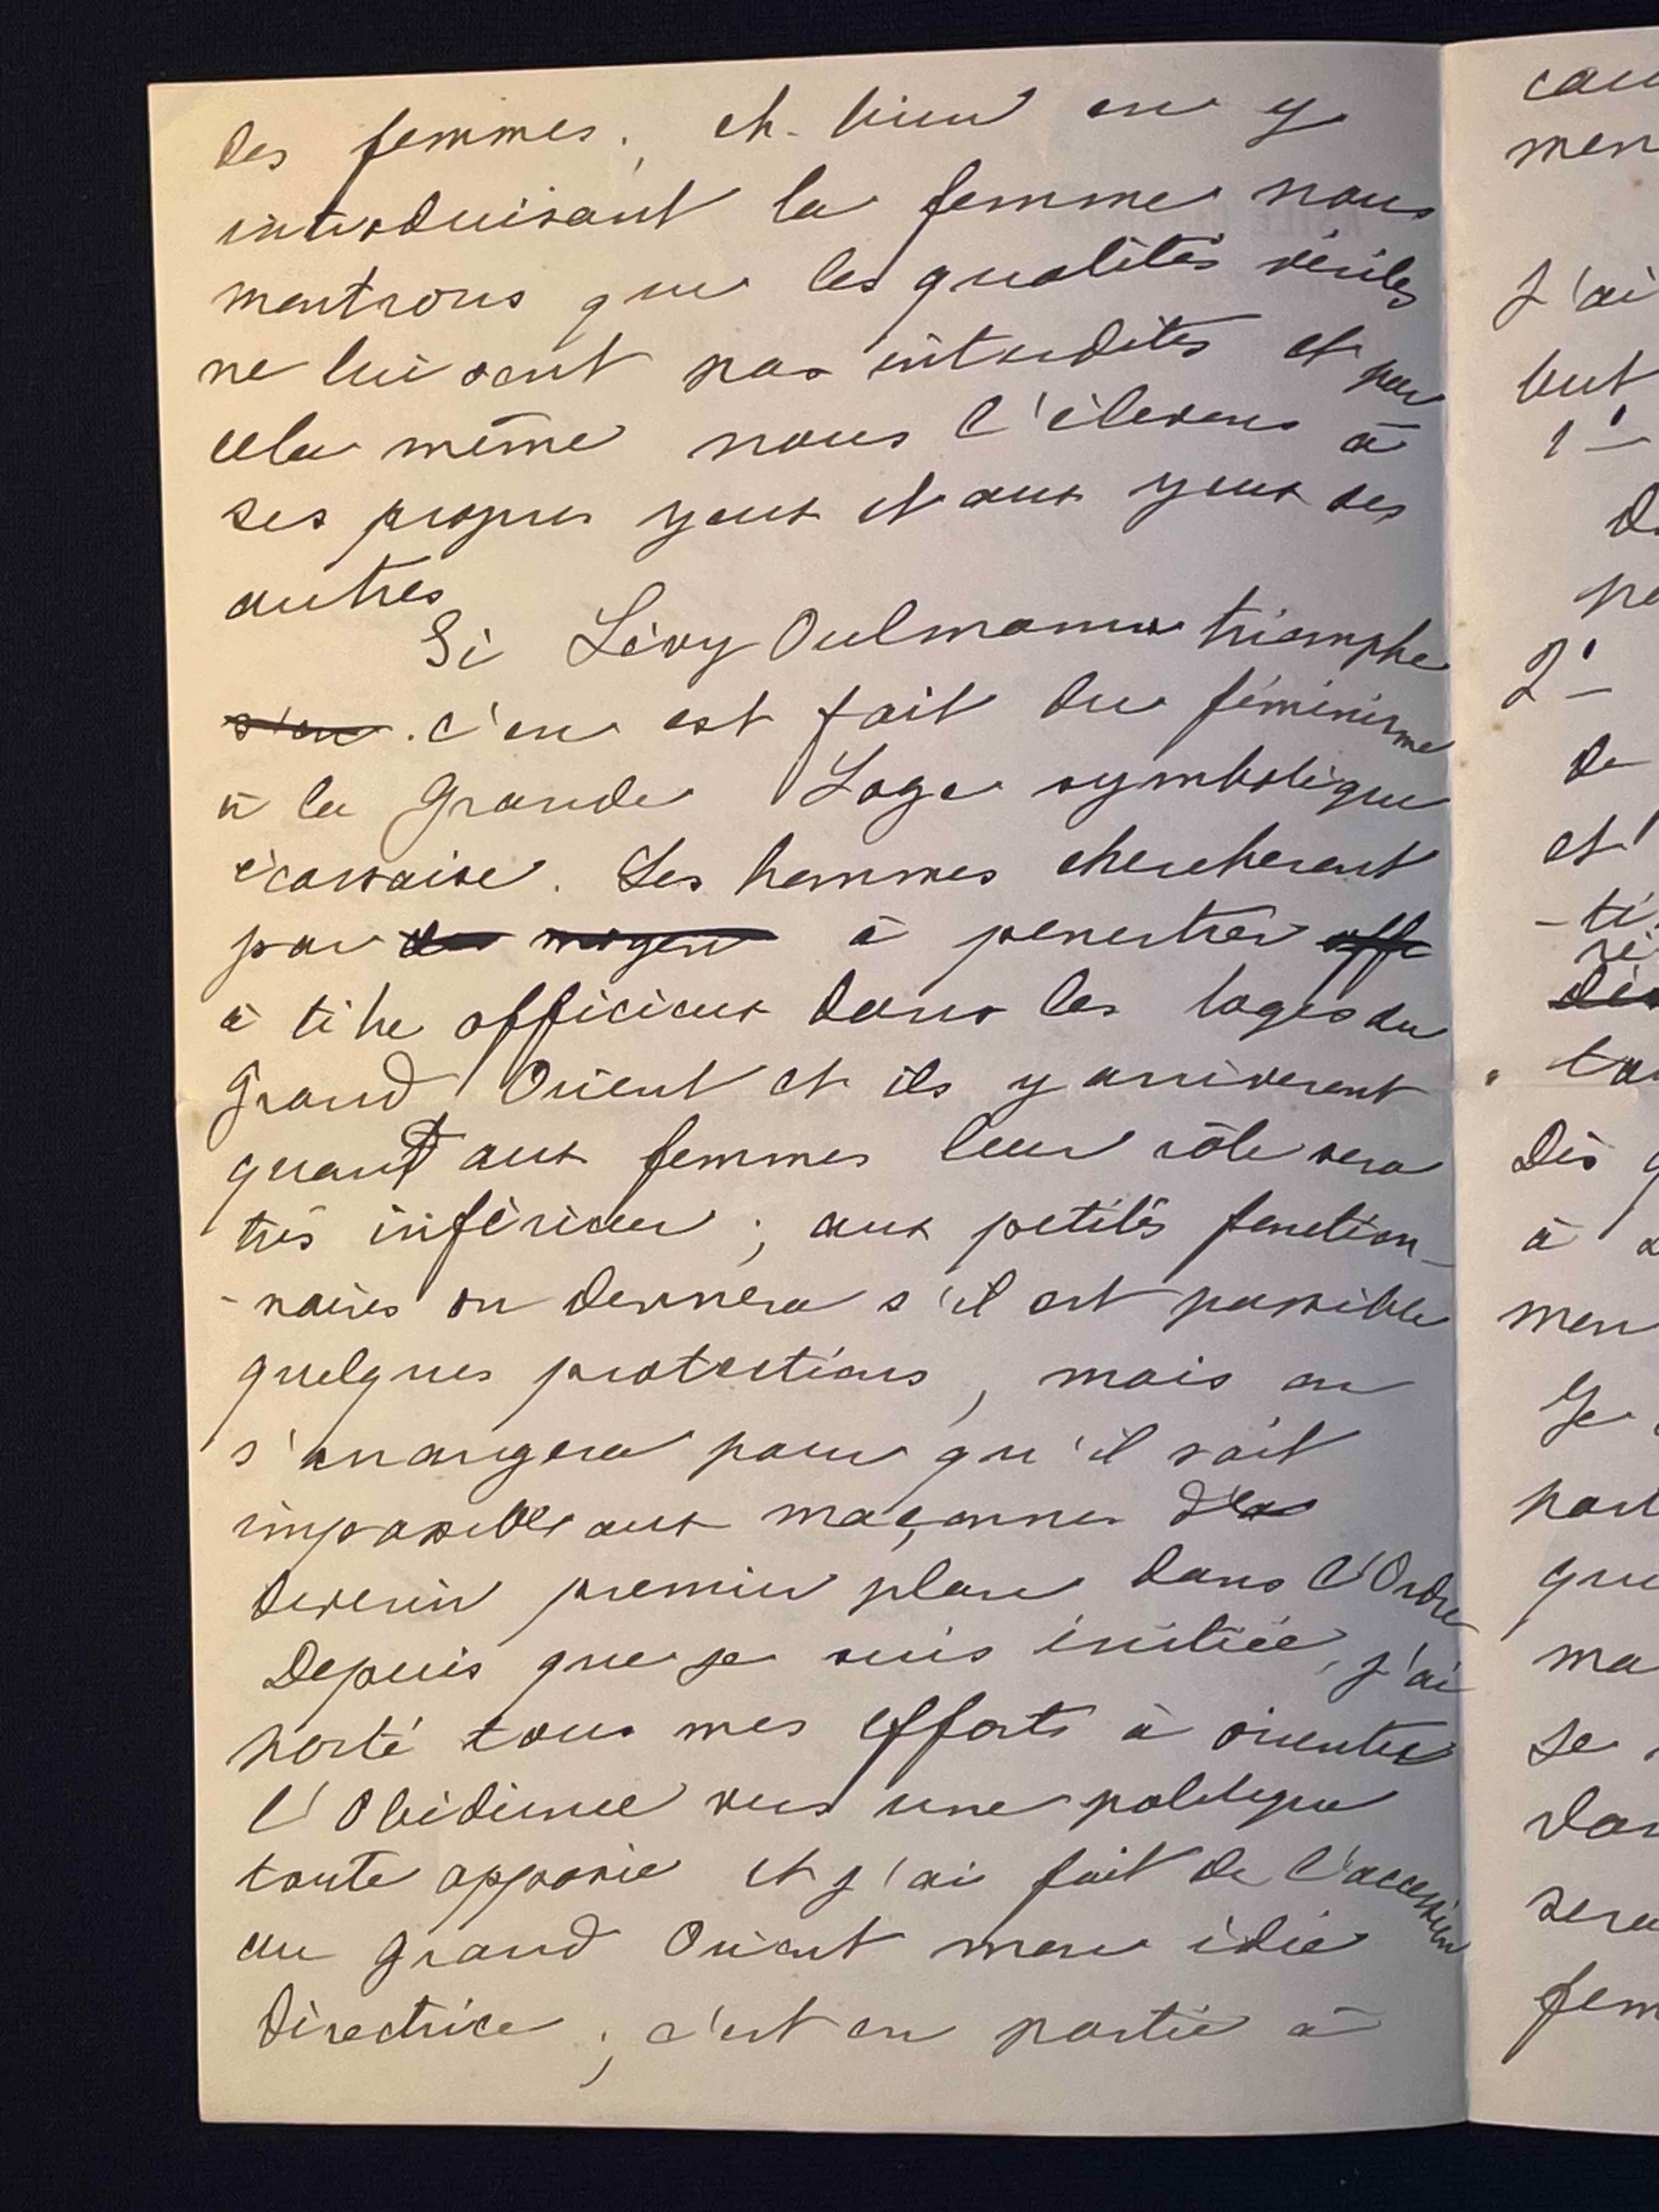 des femmes ; eh. bien en y
introduisant la femme nous
montrons que les qualités viriles
ne lui sont pas interdites et par
cela même nous l'élevons à
ses propres yeux et aux yeux des
autres
Si Lévy Oulmann triomphe
s'en . c'en est fait du féminisme
à la Grande Loge symbolique
écossaise. Les hommes chercheront
par des moyens à penetrer offi
à titre officieux dans les loges du
Grand Orient et ils y arriveront
quant aux femmes leur rôle sera
très inférieur ; aux petites fonction-
-naires on donnera s'il est possible
quelques protections, mais on
s'arrangera pour qu'il soit
impossible aux maçonnes
devenir premier plan dans l'Ordre
Depuis que je suis initiée, j'ai
porté tous mes efforts à orienter
l'Obédience vers une politique
toute opposée et j'ai fait de l'accession
au Grand Orient mon idée
directrice ; c'est en partie à
men
J'ai
but
1°-
2°-
de
et
Dès
à
men
Je
que
ma
se
fem